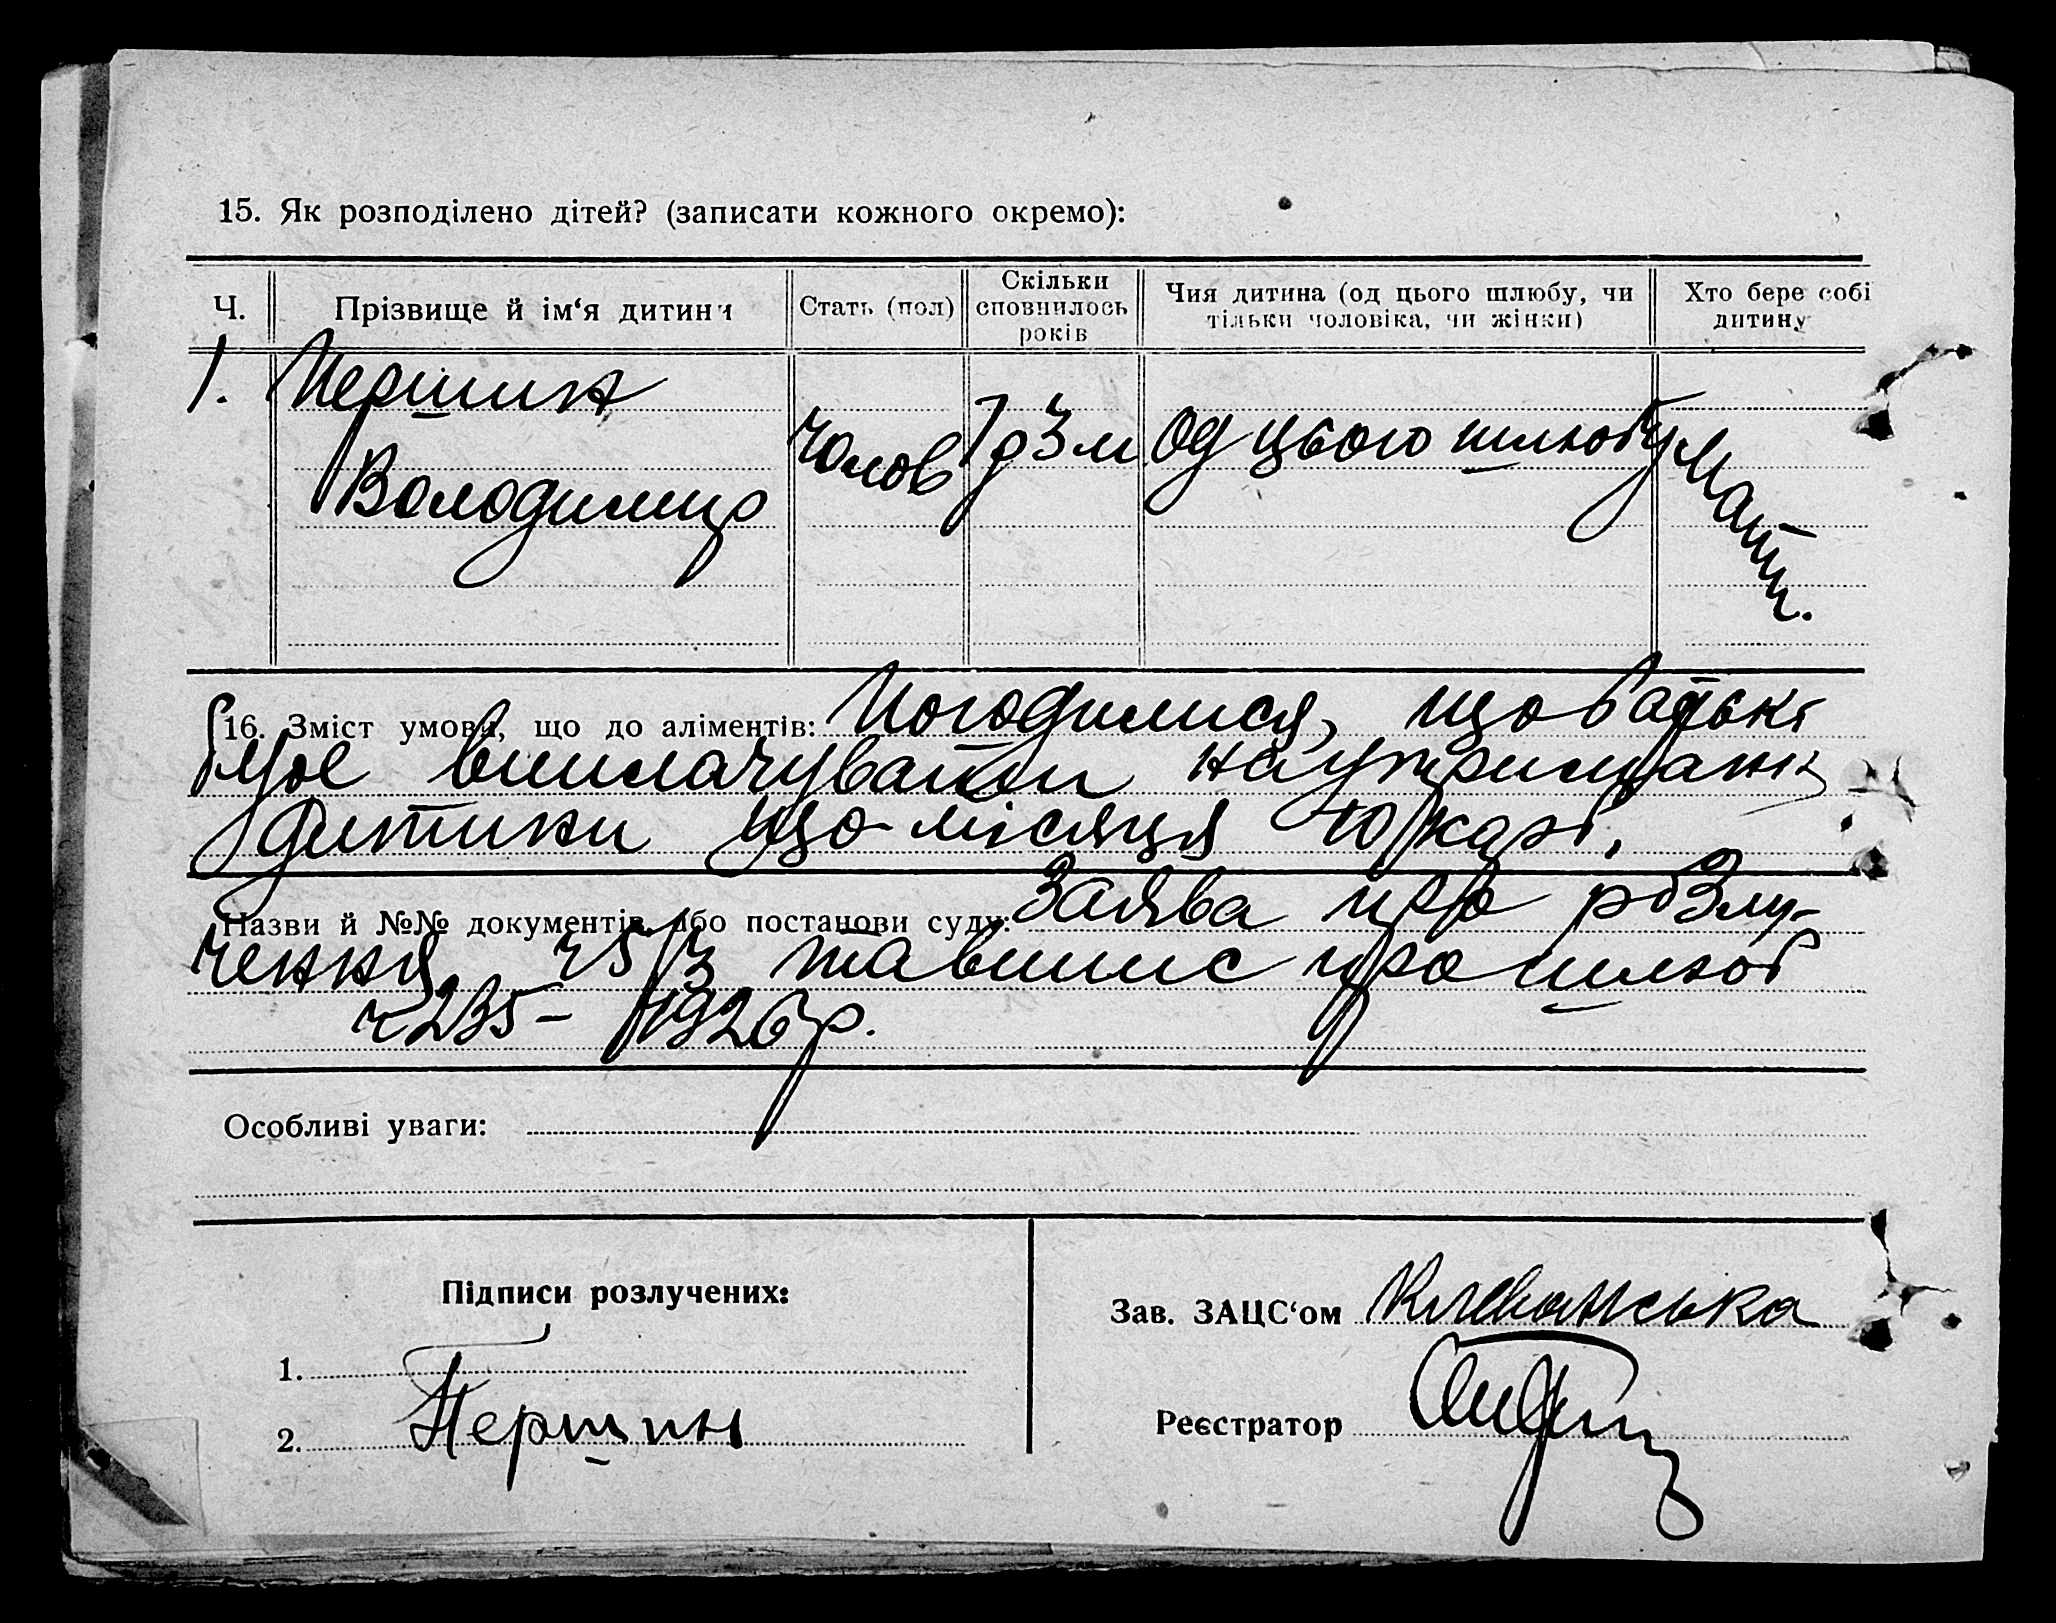 15. Як розподілено дітей? (записати кожного окремо):
Ч. Прізвище й ім‘я дитини Стать (пол) Скільки сповнилось років Чия дитина (од цього шлюбу, чи тільки чоловіка, чи жінки) Хто бере собі дитину
1. Першин
Володимир чолов 3 м од цього шлюбу Мати.
16. Зміст умови, що до аліментів: Погодилися, що батько
має виплачувати на утримання
дитини що місяця 10 карб.
Назви й №№ документів або постанови суду: Заява про розлу-
чення ч 5/3 та випис про шлюб
ч 235 – 1926 р.
Особливі уваги:
Підписи розлучених:
Зав. ЗАЦС‘ом
1.
2. Першин
Реєстратор